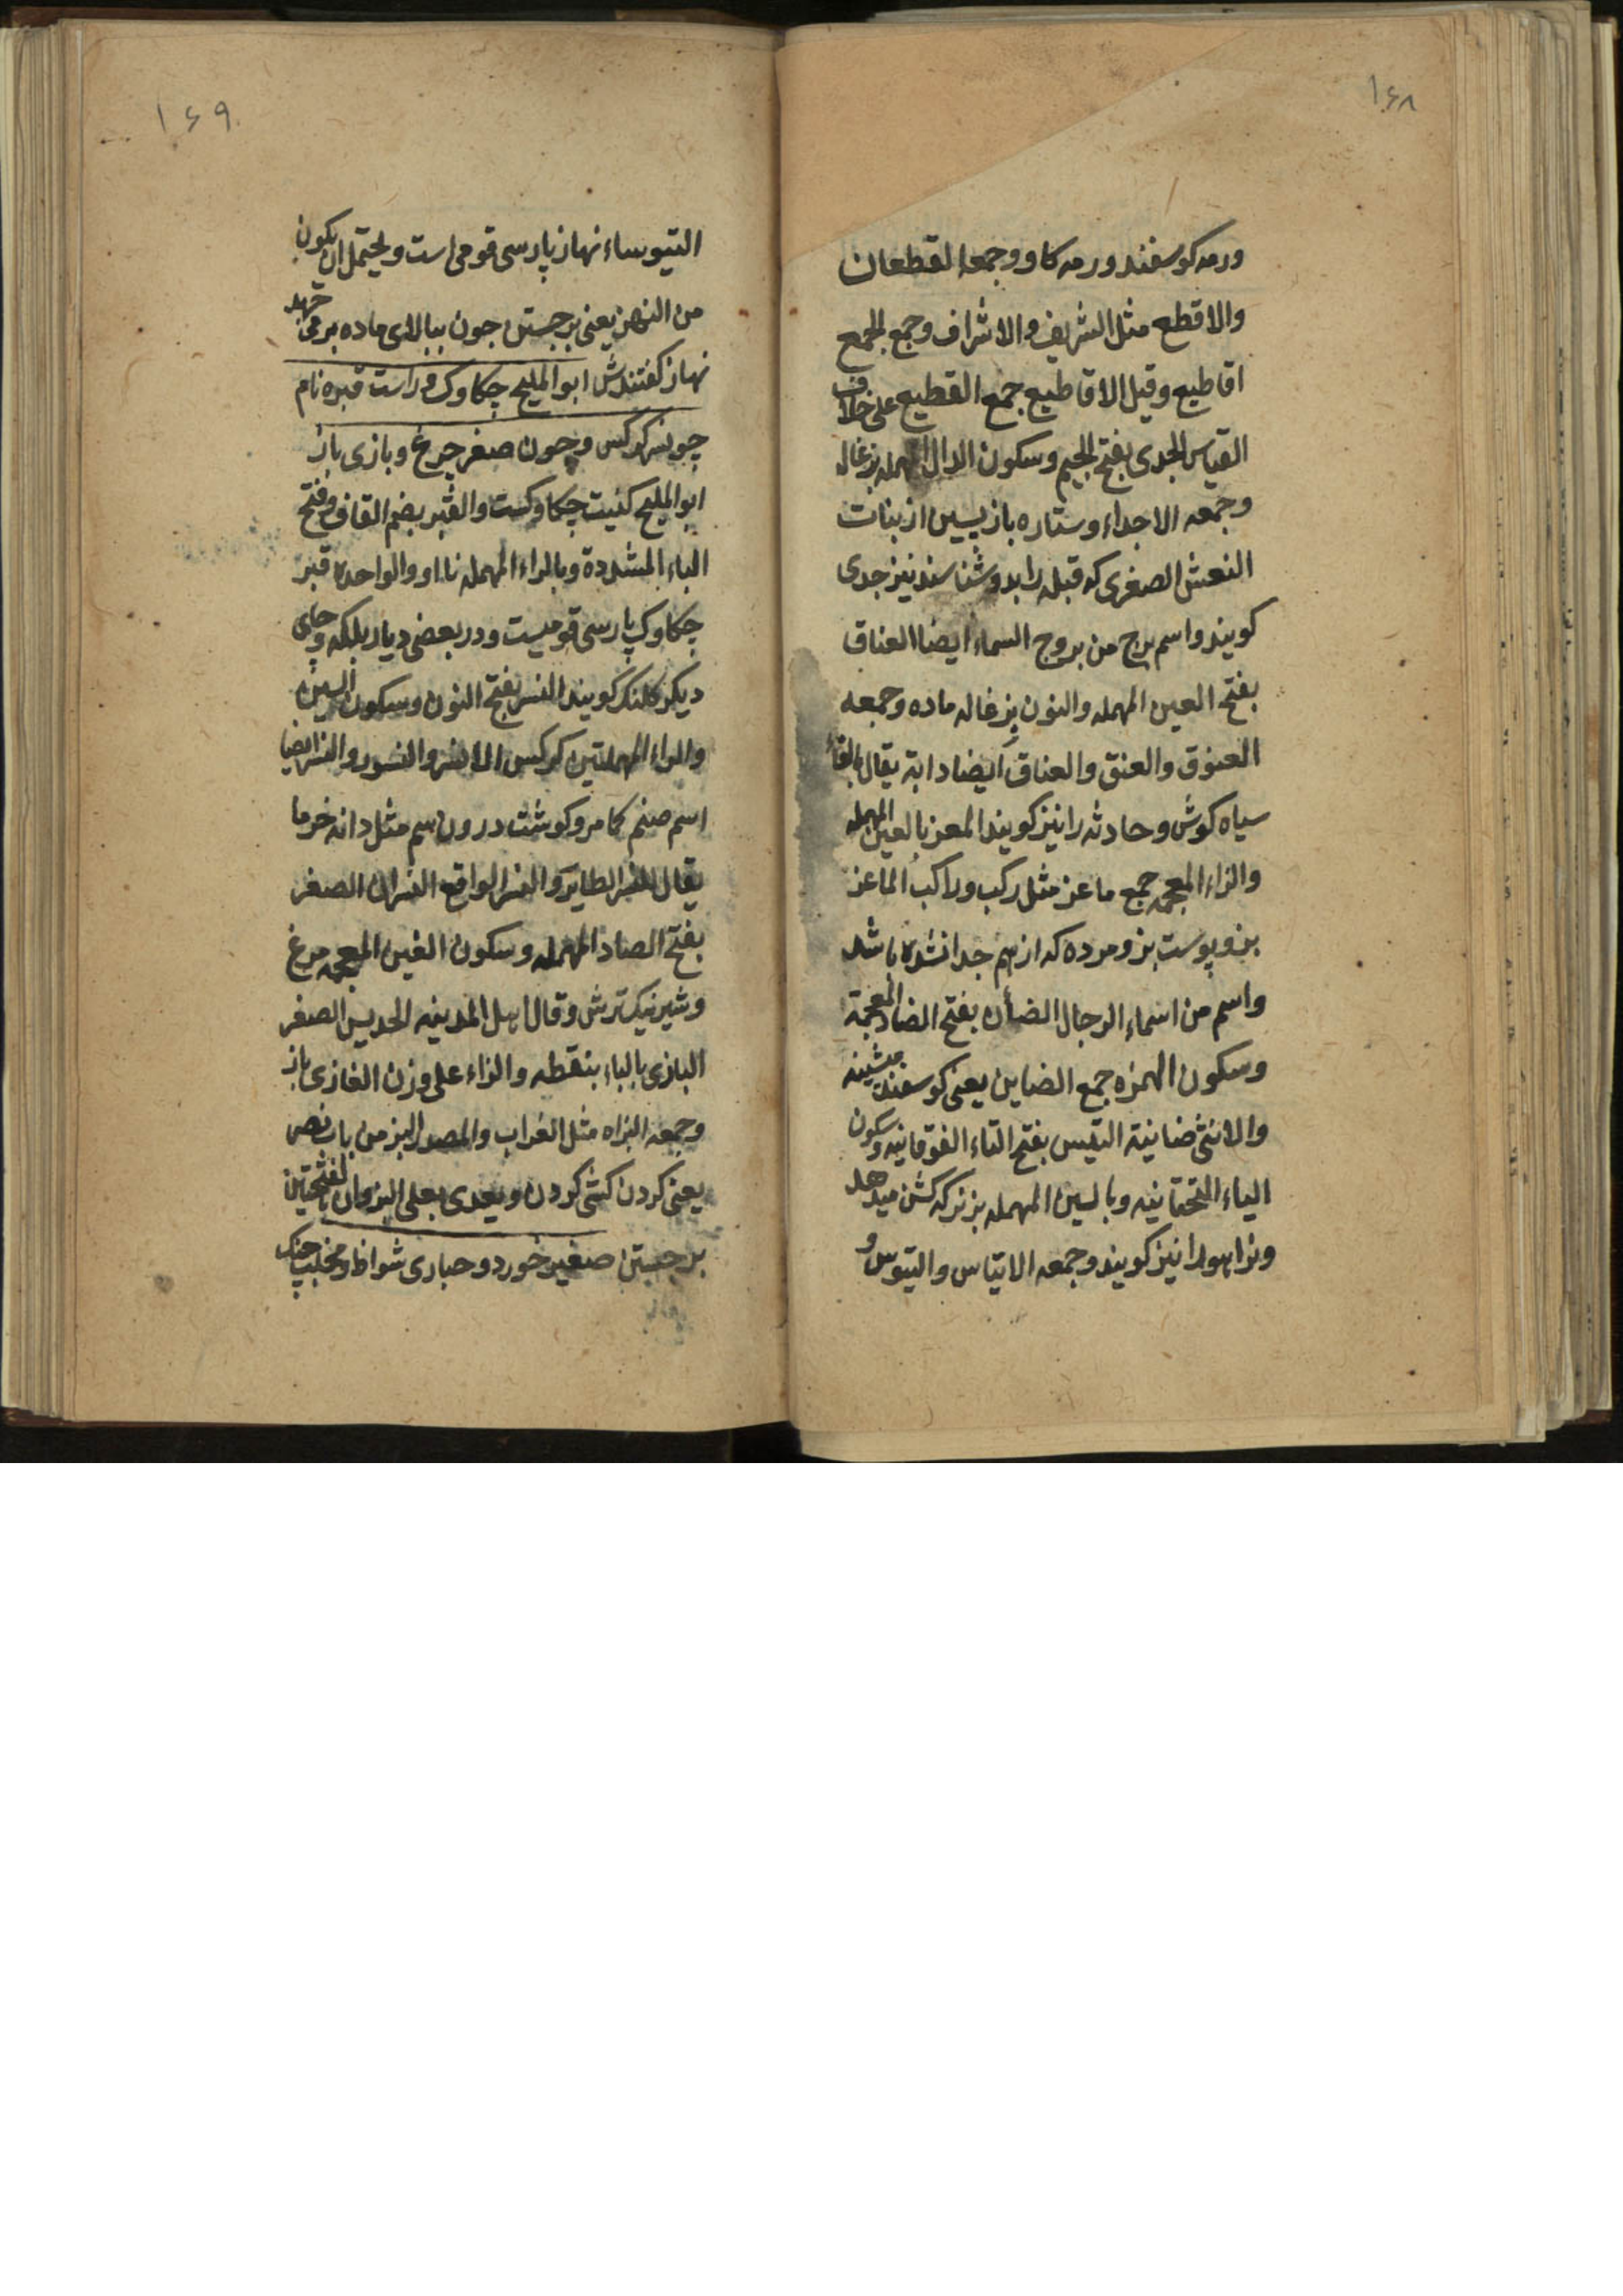 ۱۶۸
ورمه کوسفند ورمه کاو وجمعه القطعان
والاقطع مثل الشریف والاشراف وجمع الجمع
اقاطیع وقیل الاقاطیع جمع القطیع علی خلاف
القیاس الجدی بفتح الجیم وسکون الدال المهمله بزغاله
وجمعه الاجداء وستاره بازپسین از بنات
النعش الصغری که قبله را بدو شناسند نیز جدی
کویند واسم برج من بروج السماء ایضا العناق
بفتح العین المهمله والنون بزغاله ماده وجمعه
العنوق والعنق والعناق ایضا دابة یقال بالفا
سیاه کوش وحادثه را نیز کویند المعز بالعین المهمله
والزاء المعجمه جمع ماعز مثل رکب وراکب الماعز
بز وپوست بز ومرده که از هم جدا نشده باشد
واسم من اسماء الرجال الضأن بفتح الضاد المعجمة
وسکون الهمزه جمع الضاین یعنی کوسفند میشینه
والانثی ضاینة التیس بفتح التاء الفوقانیه وسکون
الیاء التحتانیه وبالسین المهمله بز نر که کشن میدهد
ونر اهو را نیز کویند وجمعه الاتیاس والتیوس و
۱۶۹
التیوساء نهاز پارسی قومی است ویحتمل ان یکون
من النهز یعنی برجستن چون ببالای ماده برمی جهد
نهاز کفتندش ابو الملیح چکاوک و راست قبره نام
چو نسر کرکس وچون صغر چرغ وبازی باز
ابو الملیح کنیت چکاوکست والقبر بضم القاف وفتح
الباء المشدده وبالراء المهمله نا او والواحده قبر
چکاوک پارسی قومیست ودر بعضی دیار بلکه وجای
دیکر کلنک کویند النسر بفتح النون وسکون السین
والراء المهملتین کرکس الانسر والنسور والنسر ایضا
اسم صنم کما مر وکوشت درون سم مثل دانه خرما
یقال النسر الطایر والنسر الواقع النسران الصغر
بفتح الصاد المهمله وسکون الغین المعجمه مرغ
وشیر نیک ترش وقال اهل المدینه الدبس الصغر
البازی بالباء بنقطه والزاء علی وزن الغازی باز
وجمعه البزاه مثل الغراب والمصدر البز من باب نصر
یعنی کردن کشی کردن ویعدی بعلی البزوان بالفتحتین
برجستن صغیر خورد و حباری شواظ ومخلب چنک